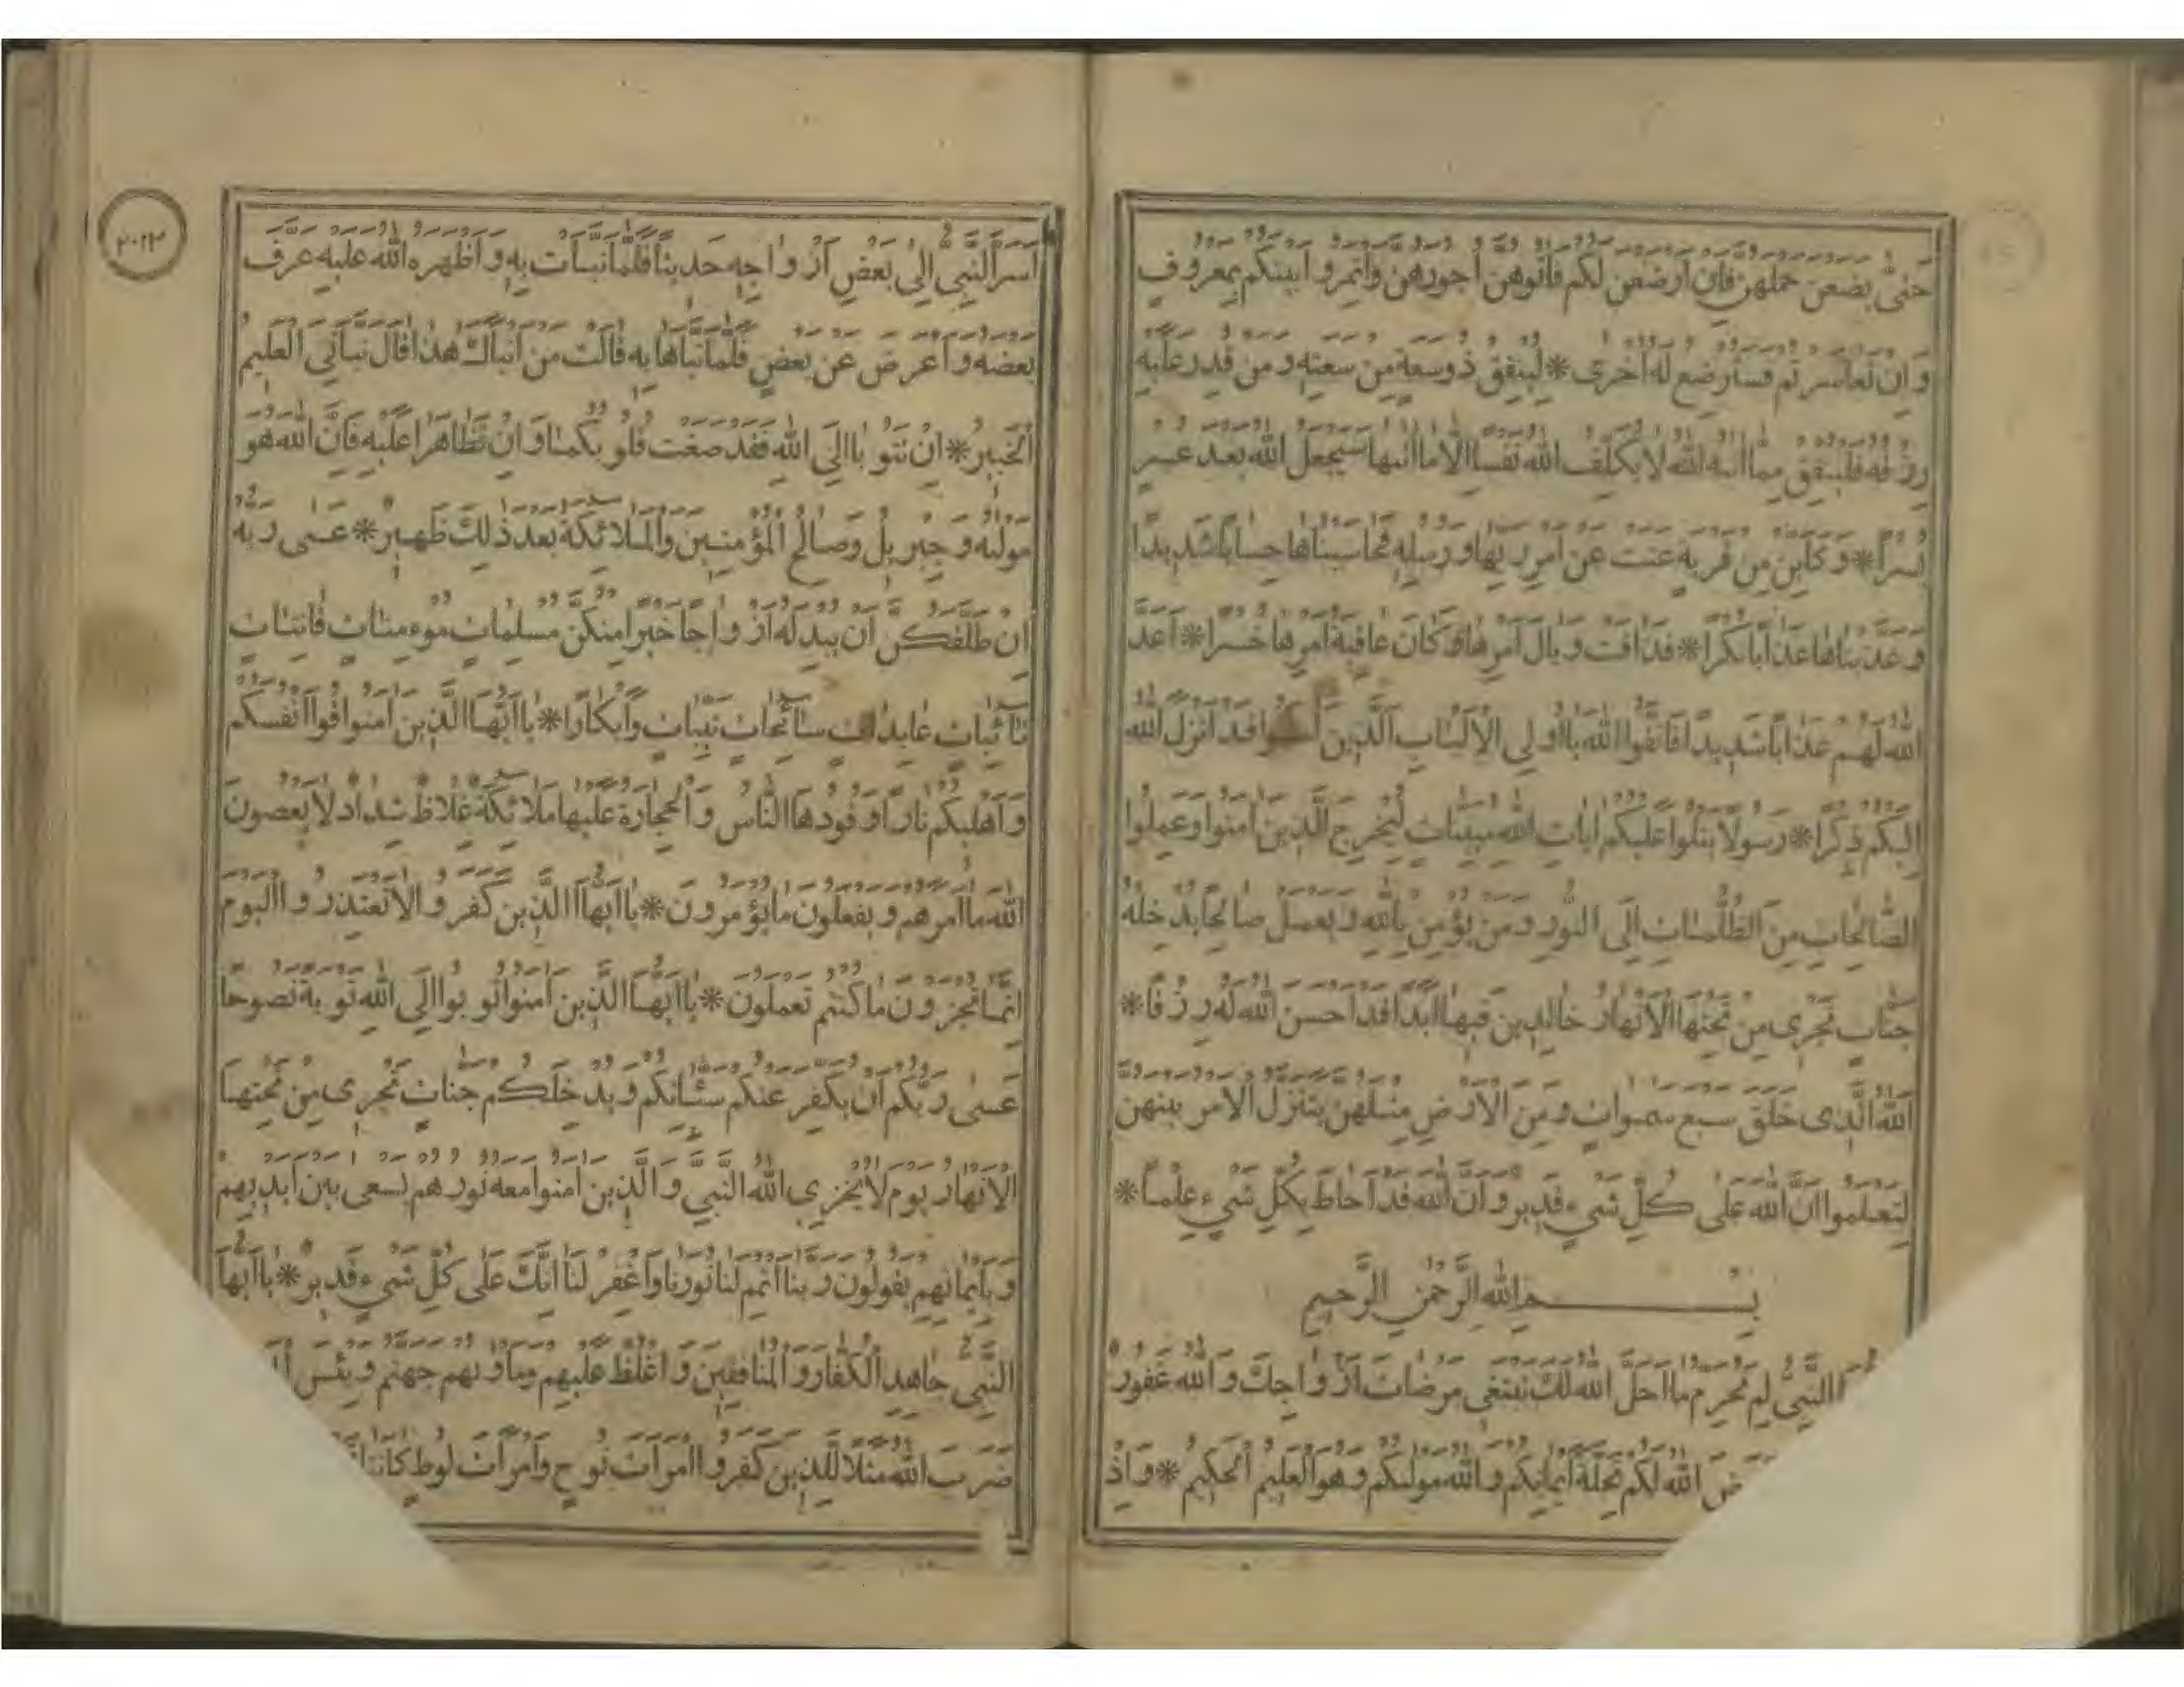 حَتّٰى يَضَعْنَ حَمْلَهُنَّ فَاِنْ اَرْضَعْنَ لَكُمْ فَاٰتُوهُنَّ اُجُورَهُنَّ وَاْتَمِرُوا بَيْنَكُمْ بِمَعْرُوفٍ
وَاِنْ تَعَاسَرْتُمْ فَسَتُرْضِعُ لَهُ اُخْرٰى * لِيُنْفِقْ ذُو سَعَةٍ مِنْ سَعَتِهِ وَمَنْ قُدِرَ عَلَيْهِ
رِزْقُهُ فَلْيُنْفِقْ مِمَّا اٰتٰيهُ اللّٰهُ لَا يُكَلِّفُ اللّٰهُ نَفْسًا اِلَّا مَا اٰتٰيهَا سَيَجْعَلُ اللّٰهُ بَعْدَ عُسْرٍ
يُسْرًا * وَكَاَيِّنْ مِنْ قَرْيَةٍ عَتَتْ عَنْ اَمْرِ رَبِّهَا وَرُسُلِهِ فَحَاسَبْنَاهَا حِسَابًا شَدِيدًا
وَعَذَّبْنَاهَا عَذَابًا نُكْرًا * فَذَاقَتْ وَبَالَ اَمْرِهَا وَكَانَ عَاقِبَةُ اَمْرِهَا خُسْرًا * اَعَدَّ
اللّٰهُ لَهُمْ عَذَابًا شَدِيدًا فَاتَّقُوا اللّٰهَ يَا اُولِي الْاَلْبَابِ الَّذِينَ قَدْ اَنْزَلَ اللّٰهُ
اِلَيْكُمْ ذِكْرًا * رَسُولًا يَتْلُوا عَلَيْكُمْ اٰيَاتِ اللّٰهِ مُبَيِّنَاتٍ لِيُخْرِجَ الَّذِينَ اٰمَنُوا وَعَمِلُوا
الصَّالِحَاتِ مِنَ الظُّلُمَاتِ اِلَى النُّورِ وَمَنْ يُؤْمِنْ بِاللّٰهِ وَيَعْمَلْ صَالِحًا يُدْخِلْهُ
جَنَّاتٍ تَجْرِى مِنْ تَحْتِهَا الْاَنْهَارُ خَالِدِينَ فِيهَا اَبَدًا قَدْ اَحْسَنَ اللّٰهُ لَهُ رِزْقًا *
اَللّٰهُ الَّذِى خَلَقَ سَبْعَ سَمٰوَاتٍ وَمِنَ الْاَرْضِ مِثْلَهُنَّ يَتَنَزَّلُ الْاَمْرُ بَيْنَهُنَّ
لِتَعْلَمُوا اَنَّ اللّٰهَ عَلٰى كُلِّ شَيْءٍ قَدِيرٌ وَاَنَّ اللّٰهَ قَدْ اَحَاطَ بِكُلِّ شَيْءٍ عِلْمًا *
بِسْمِ اللّٰهِ الرَّحْمٰنِ الرَّحِيمِ
النَّبِيُّ لِمَ تُحَرِّمُ مَا اَحَلَّ اللّٰهُ لَكَ تَبْتَغِى مَرْضَاتَ اَزْوَاجِكَ وَاللّٰهُ غَفُورٌ
اللّٰهُ لَكُمْ تَحِلَّةَ اَيْمَانِكُمْ وَاللّٰهُ مَوْلٰيكُمْ وَهُوَ الْعَلِيمُ الْحَكِيمُ * وَاِذْ
٢٠٢٣
اَسَرَّ النَّبِيُّ اِلٰى بَعْضِ اَزْوَاجِهِ حَدِيثًا فَلَمَّا نَبَّاَتْ بِهِ وَاَظْهَرَهُ اللّٰهُ عَلَيْهِ عَرَّفَ
بَعْضَهُ وَاَعْرَضَ عَنْ بَعْضٍ فَلَمَّا نَبَّاَهَا بِهِ قَالَتْ مَنْ اَنْبَاَكَ هٰذَا قَالَ نَبَّاَنِيَ الْعَلِيمُ
الْخَبِيرُ * اِنْ تَتُوبَا اِلَى اللّٰهِ فَقَدْ صَغَتْ قُلُوبُكُمَا وَاِنْ تَظَاهَرَا عَلَيْهِ فَاِنَّ اللّٰهَ هُوَ
مَوْلٰيهُ وَجِبْرِيلُ وَصَالِحُ الْمُؤْمِنِينَ وَالْمَلَائِكَةُ بَعْدَ ذٰلِكَ ظَهِيرٌ * عَسٰى رَبُّهُ
اِنْ طَلَّقَكُنَّ اَنْ يُبْدِلَهُ اَزْوَاجًا خَيْرًا مِنْكُنَّ مُسْلِمَاتٍ مُوءْمِنَاتٍ قَانِتَاتٍ
تَائِبَاتٍ عَابِدَاتٍ سَائِحَاتٍ ثَيِّبَاتٍ وَاَبْكَارًا * يَا اَيُّهَا الَّذِينَ اٰمَنُوا قُوا اَنْفُسَكُمْ
وَاَهْلِيكُمْ نَارًا وَقُودُهَا النَّاسُ وَالْحِجَارَةُ عَلَيْهَا مَلَائِكَةٌ غِلَاظٌ شِدَادٌ لَا يَعْصُونَ
اللّٰهَ مَا اَمَرَهُمْ وَيَفْعَلُونَ مَا يُؤْمَرُونَ * يَا اَيُّهَا الَّذِينَ كَفَرُوا لَا تَعْتَذِرُوا الْيَوْمَ
اِنَّمَا تُجْزَوْنَ مَا كُنْتُمْ تَعْمَلُونَ * يَا اَيُّهَا الَّذِينَ اٰمَنُوا تُوبُوا اِلَى اللّٰهِ تَوْبَةً نَصُوحًا
عَسٰى رَبُّكُمْ اَنْ يُكَفِّرَ عَنْكُمْ سَيِّئَاتِكُمْ وَيُدْخِلَكُمْ جَنَّاتٍ تَجْرِى مِنْ تَحْتِهَا
الْاَنْهَارُ يَوْمَ لَا يُخْزِى اللّٰهُ النَّبِيَّ وَالَّذِينَ اٰمَنُوا مَعَهُ نُورُهُمْ يَسْعٰى بَيْنَ اَيْدِيهِمْ
وَبِاَيْمَانِهِمْ يَقُولُونَ رَبَّنَا اَتْمِمْ لَنَا نُورَنَا وَاغْفِرْ لَنَا اِنَّكَ عَلٰى كُلِّ شَيْءٍ قَدِيرٌ * يَا اَيُّهَا
النَّبِيُّ جَاهِدِ الْكُفَّارَ وَالْمُنَافِقِينَ وَاغْلُظْ عَلَيْهِمْ وَمَاْوٰيهُمْ جَهَنَّمُ وَبِئْسَ
ضَرَبَ اللّٰهُ مَثَلًا لِلَّذِينَ كَفَرُوا امْرَاَتَ نُوحٍ وَامْرَاَتَ لُوطٍ كَانَتَا